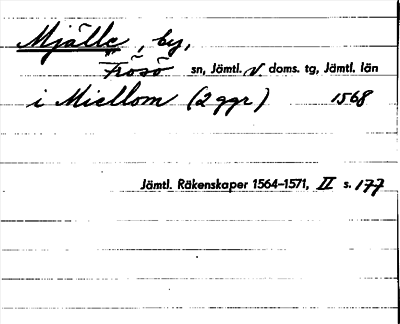 Mjälle, by,
Frösö sn, Jämtl. V doms. tg, Jämtl. län
i Miellom (2 ggr) 1568
Jämtl. Räkenskaper 1564–1571, II s. 177